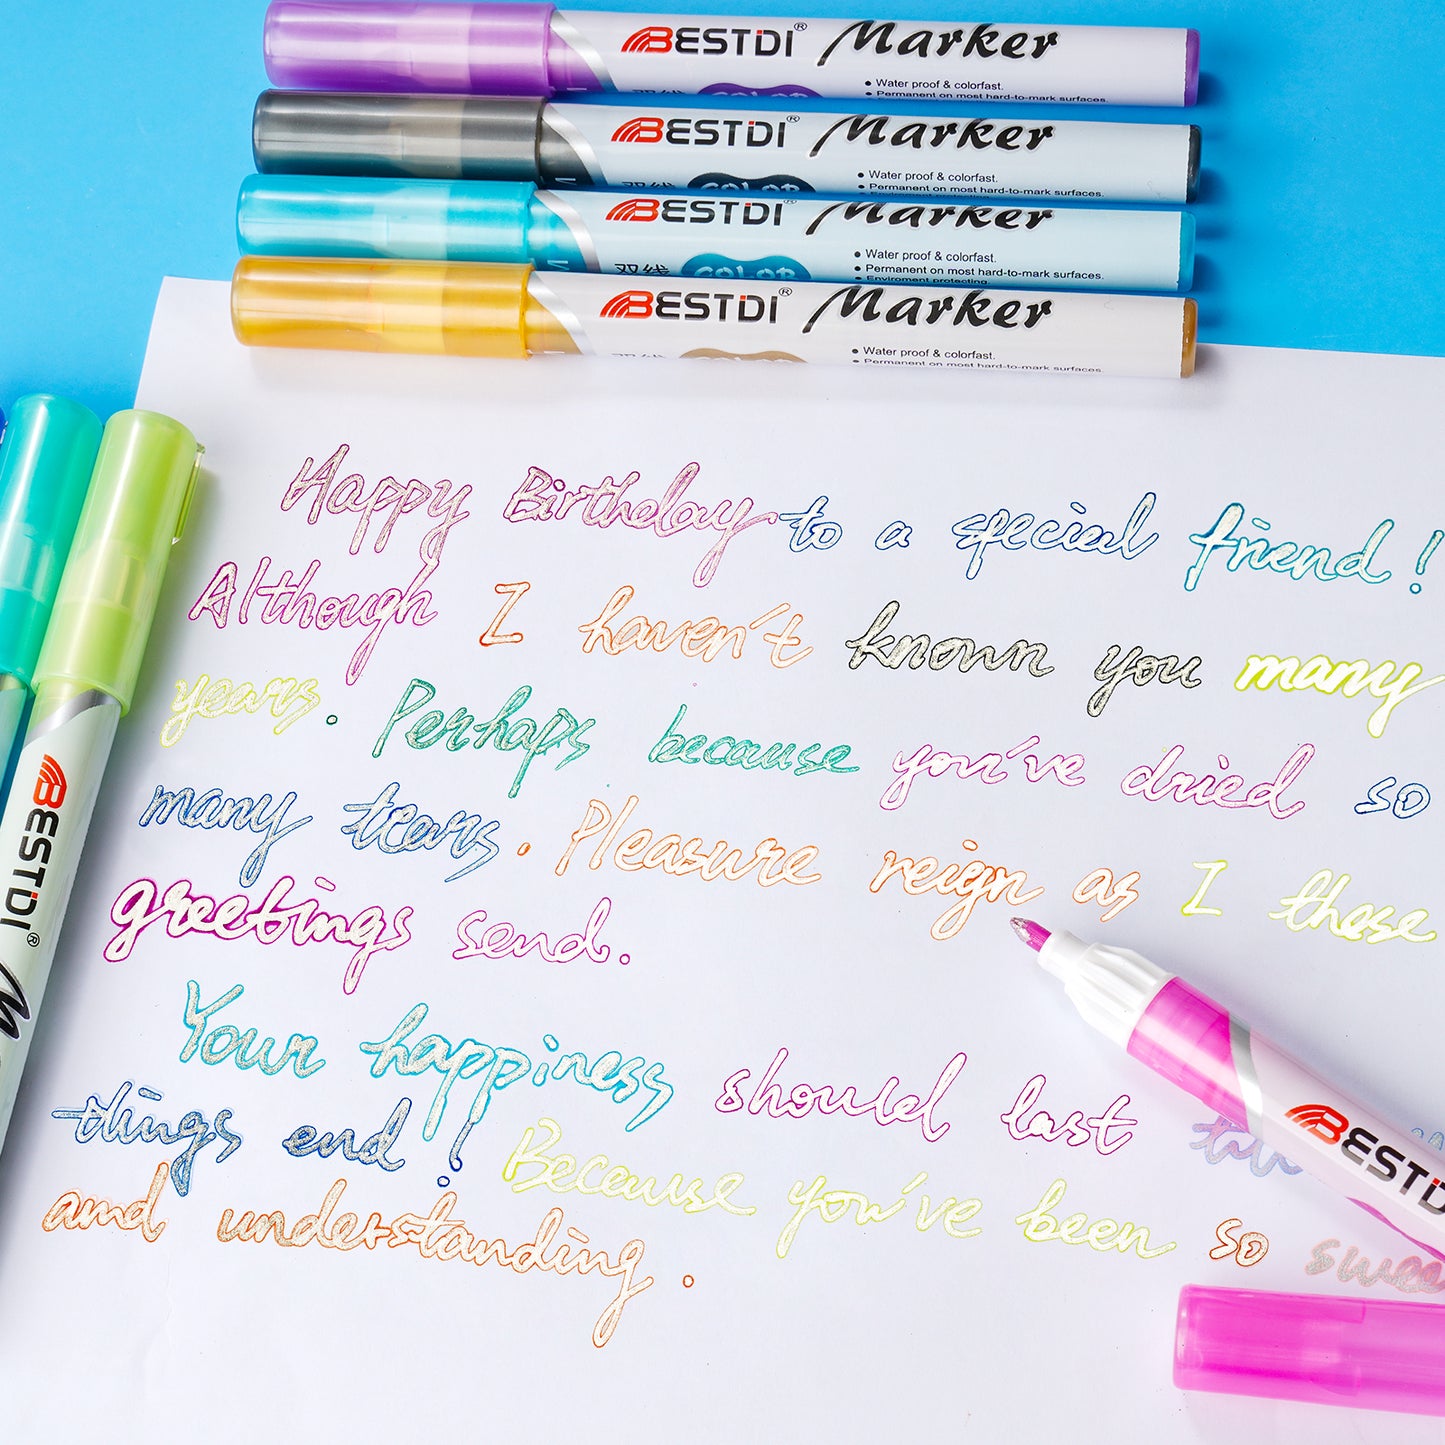 BESTDI® Marker
Water proof & colorfast.
Permanent on most hard-to-mark surfaces.
BESTDI® Marker
双线 COLOR
Water proof & colorfast.
Permanent on most hard-to-mark surfaces.
Enviroment protecting.
BESTDI® Marker
双线 COLOR
Water proof & colorfast.
Permanent on most hard-to-mark surfaces.
Enviroment protecting.
BESTDI® Marker
双线 COLOR
Water proof & colorfast.
Permanent on most hard-to-mark surfaces.
Happy Birthday to a special friend!
Although I haven't known you many
years. Perhaps because you've dried so
many tears. Pleasure reign as I these
greetings send.
Your happiness should last
things end! Because you've been so swee
and understanding.
BESTDI® M
BESTDI